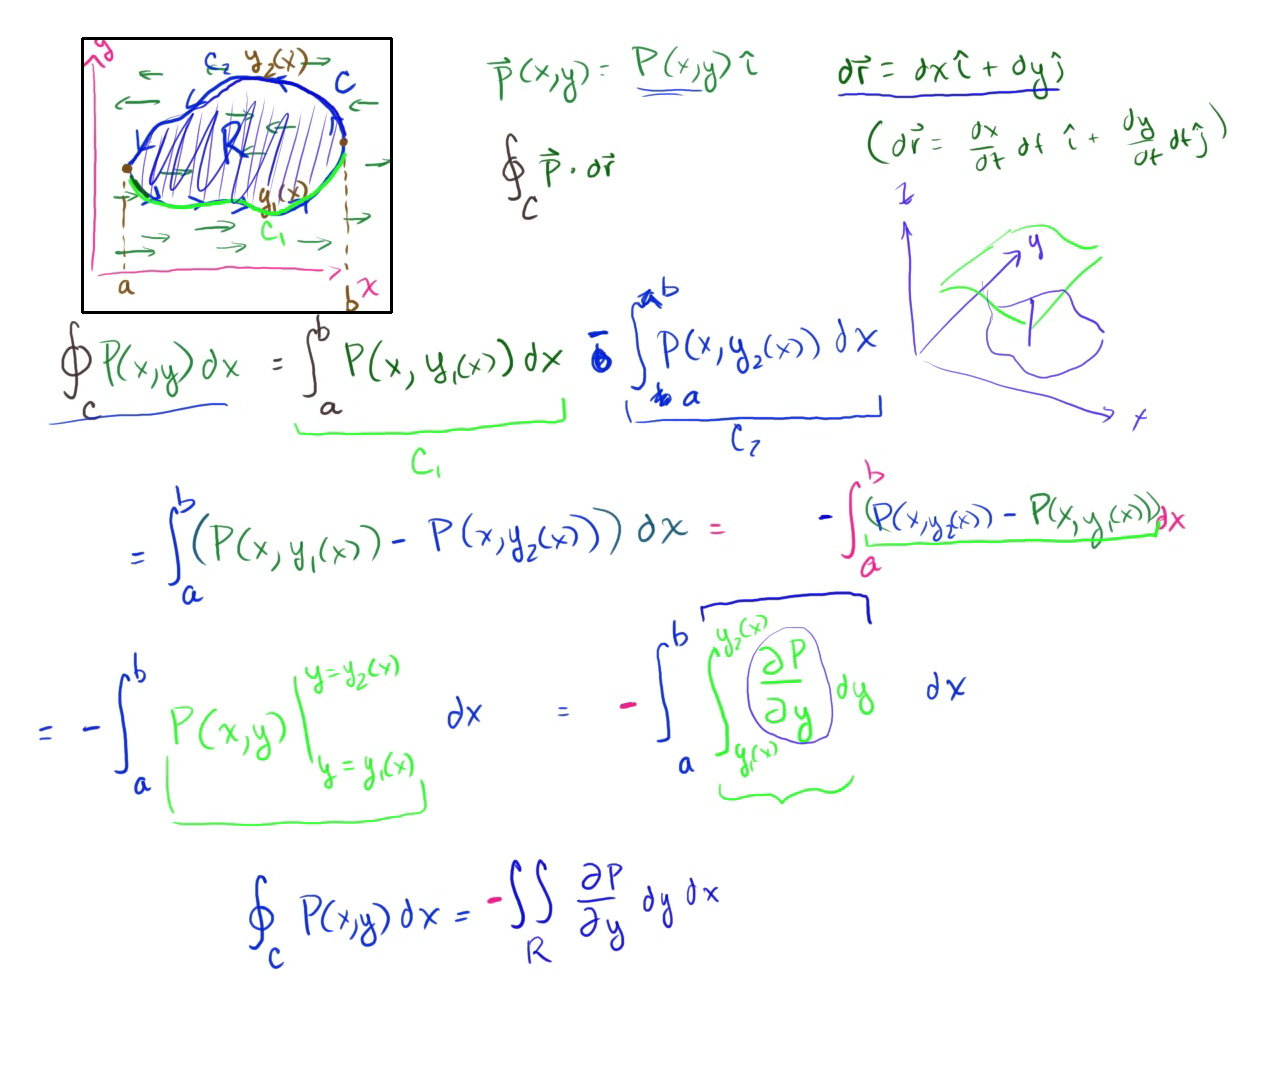 y
C₂ y₂(x)
C
R
y₁(x)
C₁
a
b x
P⃗(x,y) = P(x,y) î
dr⃗ = dx î + dy ĵ
∮_C P⃗ · dr⃗
(dr⃗ = dx/dt dt î + dy/dt dt ĵ)
z
y
x
∮_C P(x,y) dx = ∫_a^b P(x, y₁(x)) dx - ∫_a^b P(x, y₂(x)) dx
C₁
C₂
= ∫_a^b (P(x, y₁(x)) - P(x, y₂(x))) dx = - ∫_a^b (P(x, y₂(x)) - P(x, y₁(x))) dx
= - ∫_a^b P(x,y) |_{y = y₁(x)}^{y = y₂(x)} dx = - ∫_a^b ∫_{y₁(x)}^{y₂(x)} ∂P/∂y dy dx
∮_C P(x,y) dx = - ∬_R ∂P/∂y dy dx